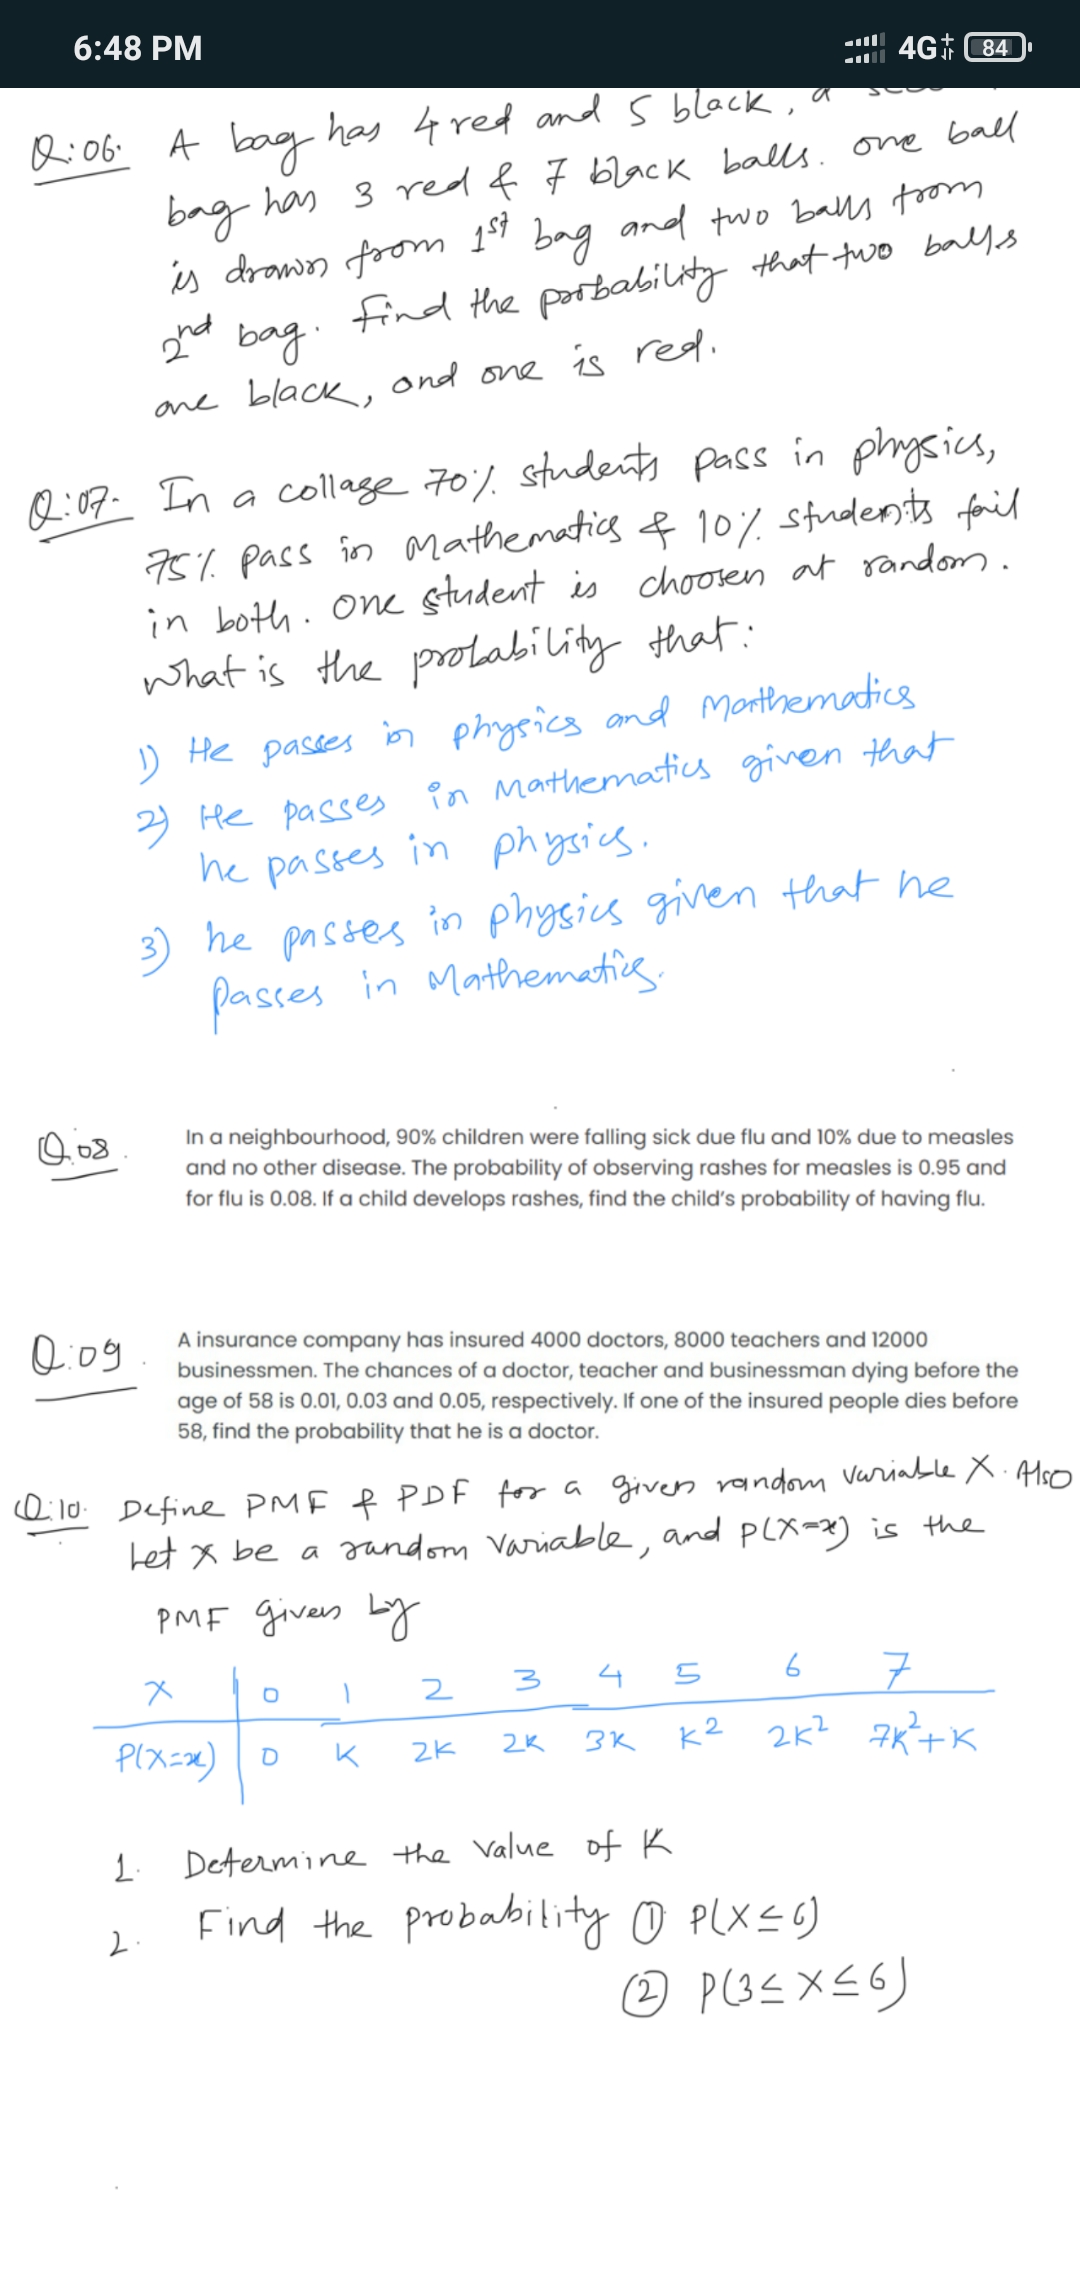 6:48 PM 4G 84
Q:06. A bag has 4 red and 5 black, a
bag has 3 red & 7 black balls. one ball
is drawn from 1st bag and two balls from
2nd bag. Find the probability that two balls
one black, and one is red.
Q:07- In a collage 70% students pass in physics,
75% pass in Mathematics & 10% students fail
in both. One student is choosen at random.
What is the probability that:
1) He passes in physics and Mathematics
2) He passes in Mathematics given that
he passes in physics.
3) he passes in physics given that he
passes in Mathematics.
Q.08. In a neighbourhood, 90% children were falling sick due flu and 10% due to measles
and no other disease. The probability of observing rashes for measles is 0.95 and
for flu is 0.08. If a child develops rashes, find the child's probability of having flu.
Q:09. A insurance company has insured 4000 doctors, 8000 teachers and 12000
businessmen. The chances of a doctor, teacher and businessman dying before the
age of 58 is 0.01, 0.03 and 0.05, respectively. If one of the insured people dies before
58, find the probability that he is a doctor.
Q:10. Define PMF & PDF for a given random variable X. Also
Let x be a random variable, and P(X=x) is the
PMF given by
x 0 1 2 3 4 5 6 7
P(X=x) 0 K 2K 2K 3K K² 2K² 7K²+K
1. Determine the value of K
2. Find the probability ① P(X≤6)
② P(3≤X≤6)